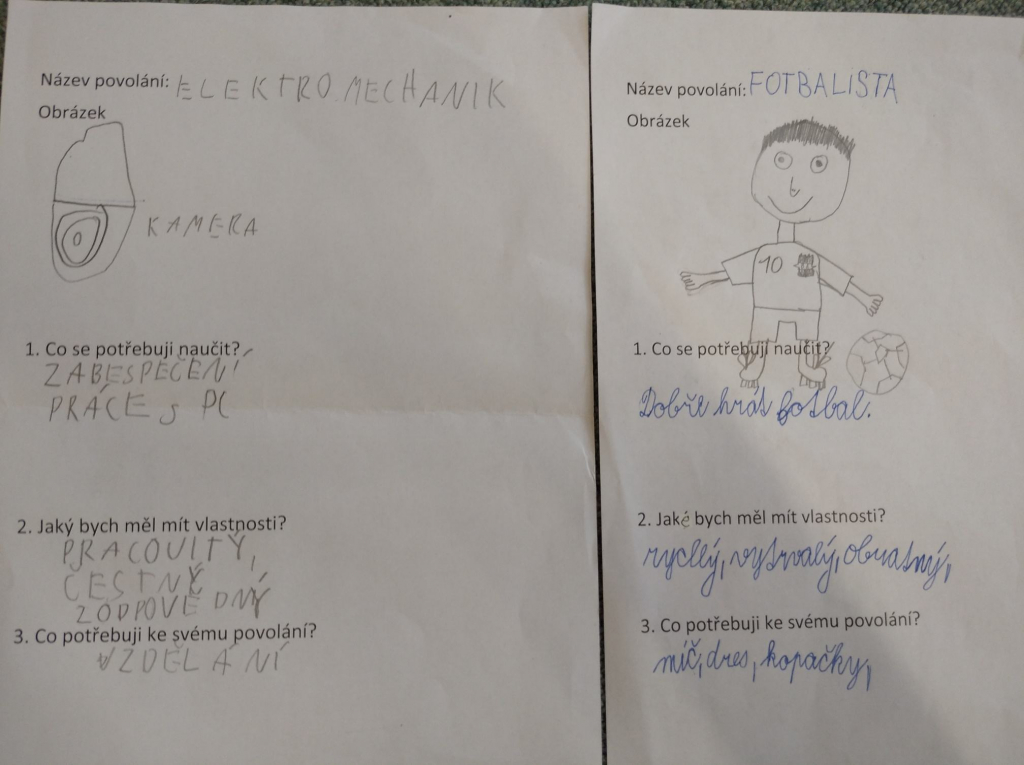 Název povolání: ELEKTROMECHANIK
Obrázek
KAMERA
1. Co se potřebuji naučit?
ZABESPEČENÍ
PRÁCE s PC
2. Jaký bych měl mít vlastnosti?
PRACOVITÝ,
ČESTNÝ
ZODPOVĚDNÝ
3. Co potřebuji ke svému povolání?
VZDĚLÁNÍ
Název povolání: FOTBALISTA
Obrázek
10
1. Co se potřebuji naučit?
Dobře hrát fotbal.
2. Jaké bych měl mít vlastnosti?
rychlý, vytrvalý, obratný,
3. Co potřebuji ke svému povolání?
míč, dres, kopačky,